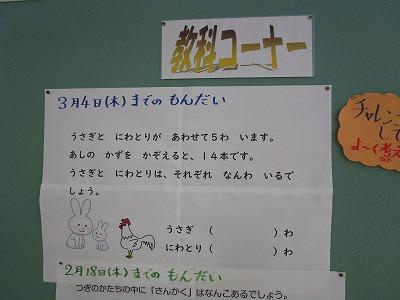 教科コーナー
3月4日(木)までのもんだい
うさぎと にわとりが あわせて5わ います。
あしの かずを かぞえると、14本です。
うさぎと にわとりは、それぞれ なんわ いるで
しょう。
うさぎ ( )わ
にわとり ( )わ
2月18日(木)までのもんだい
つぎのかたちの中に「さんかく」はなんこあるでしょう。
チャレン
して
よ〜く考え